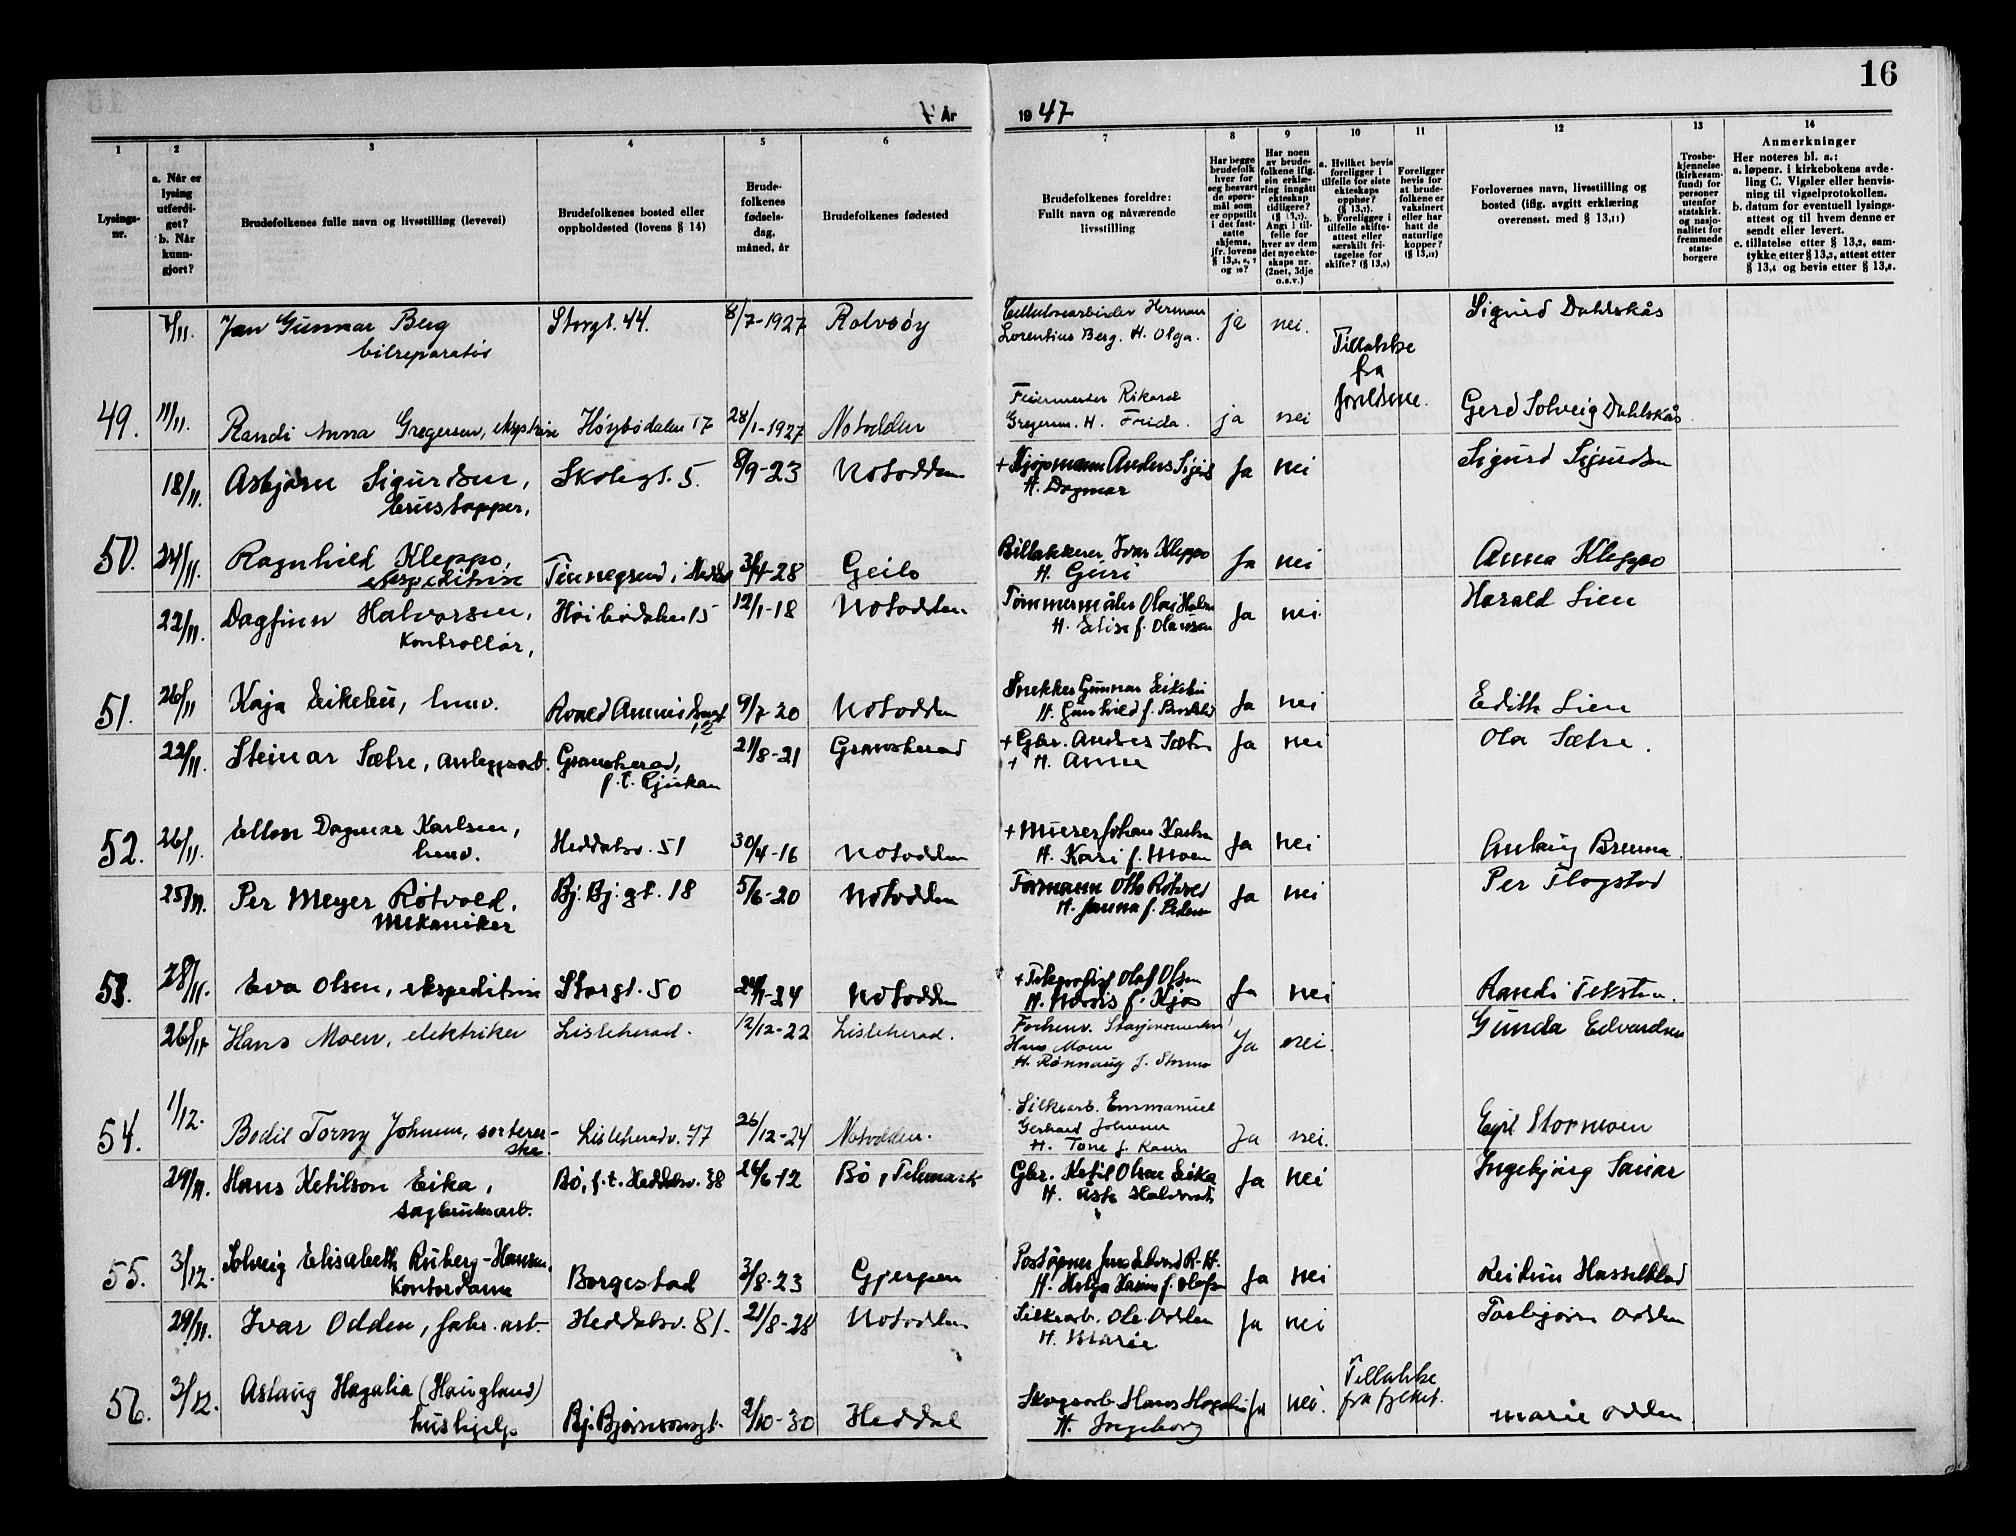 16
År
19 47
1
2
3
4
5
6
7
8
9
10
11
12
13
14
Lysings-
nr.
a. Når er
lysing
utferdi-
get?
b. Når
kunn-
gjort?
Brudefolkenes fulle navn og livsstilling (levevei)
Brudefolkenes bosted eller
oppholdssted (lovens § 14)
Brude-
folkenes
fødsels-
dag,
måned, år
Brudefolkenes fødested
Brudefolkenes foreldre:
Fullt navn og nåværende
livsstilling
Har begge
brudefolk
hver for
seg besvart
de spørs-
mål som
er oppstilt
i det fast-
satte
skjema,
jfr. lovens
Har noen
av brude-
folkene iflg.
sin erklæ-
ring inngått
ekteskap
tidligere?
Angi i til-
felle for
hver av dem
det nye ekte-
skaps nr.
(2net, 3dje
o.s.v.)
a. Hvilket bevis
foreligger i
tilfelle for siste
ekteskaps
opphør?
b. Foreligger i
tilfelle skifte-
attest eller
særskilt fri-
tagelse for
skifte?
Foreligger
bevis for
at brude-
folkene er
vaksinert
eller har
hatt de
naturlige
kopper?
Forlovernes navn, livsstilling og
bosted (iflg. avgitt erklæring
overensst. med § 13,11)
Trosbe-
kjennelse
(kirkesam-
fund) for
personer
utenfor
statskirk.
og nasjo-
nalitet for
fremmede
stats-
borgere
Anmerkninger
Her noteres bl. a.:
a. løpenr. i kirkebokens avde-
ling C. Vigsler eller henvis-
ning til vigselprotokollen.
b. datum for eventuell lysings-
attest og til hvem denne er
sendt eller levert.
c. tillatelse etter § 13,2, sam-
tykke etter § 13,3, attest etter
§ 13,4 og bevis etter § 13,8.
Jan Gunnar Berg Storgt. 44. 8/7-1927 Rolvsøy Herman ja nei. Sigurd Dahlskås
bilreparatør Lorentius Berg. H. Olga.
Tillatelse
fra
foreldrene.
Feiermester Rikard
49. 11/11. Randi Anna Gregersen, Høybødalen 17 28/1-1927 Notodden Gregersen. H. Frida. ja nei Gerd Solveig Dahlskås
18/11. Asbjørn Sigurdsen, Skolegt. 5. 8/9-23 Notodden + Kjøpmann Anders Ja nei Sigurd Sigurdsen
brustapper, H. Dagmar
50. 24/11. Ragnhild Kleppo, Tinnegrend, i Heddal 3/4-28 Geilo Ivar Kleppo Ja nei Anna Kleppo
ekspeditrise H. Guri
22/11. Dagfinn Halvorsen, Høibødalen 15 12/1-18 Notodden Tømmermåler Ja nei Harald Lien
Kontrollør, H. Elise f. Olavsen
51. 26/11 Kaja Eikebu, husv. Roald Amundsensgt 9/7-20 Notodden Snekker Gunnar Eikebu Ja nei Edith Lien
12 H. Gunhild f.
22/11. Steinar Sætre, anleggsarb. Gransherad, 21/8-21 Gransherad + Gbr. Andres Sætre Ja nei Ola Sætre.
f.t. Rjukan + H. Anne
52. 26/11. Ellen Dagmar Karlsen, Heddalsv. 51 30/4-16 Notodden + Murer Johan Karlsen Ja nei Brenna.
husv. H. Kari f. Moen
25/11. Per Meyer Røtvold, Bj. Bj. gt. 18 5/6-20 Notodden Formann Otto Røtvold Ja nei Per Flogstad
Mekaniker H. Janna f. Pedersen
53. 28/11. Eva Olsen, ekspeditrise Storgt. 50 24/1-24 Notodden + Olaf Olsen Ja nei Randi Teksten.
H. f. Kjos
26/11 Hans Moen, elektriker Lisleherad. 12/12-22 Lisleherad. Ja nei. Gunda Edvardsen
Hans Moen
H. Rønnaug f. Stormo
54. 1/12. Bodil Torny Johnsen, sorterer- Lisleheradv. 47 26/12-24 Notodden. Silkearb. Emmanuel Ja nei. Egil Stormoen
ske. Gerhard Johnsen
H. Tone f.
29/11. Hans Ketilson Eika, Bø, f.t. Heddalsv. 38 26/6-12 Bø, Telemark Gbr. Ketil Olsen Eika Ja nei Ingebjørg
sagbruksarb. H. Aste Halvorsd.
55. 3/12. Solveig Elisabeth Ruberg-Hansen, Borgestad 3/8-23 Gjerpen Poståpner R-H. Ja nei Reidun Hasselblad
Kontordame H. Helga f. Olsen
29/11. Ivar Odden, fabr. arb. Heddalsv. 81. 21/8-28 Notodden Silkearb. Ole Odden Ja nei Torbjørn Odden
H. Marie
56. 3/12. Aslaug Hagalia (Haugland) Bj. Bjørnsonsgt. 2/10-30 Heddal Skogsarb. Hans Hagalia Ja nei. Tillatelse Marie Odden
hushjelp H. Ingeborg fra fylket.